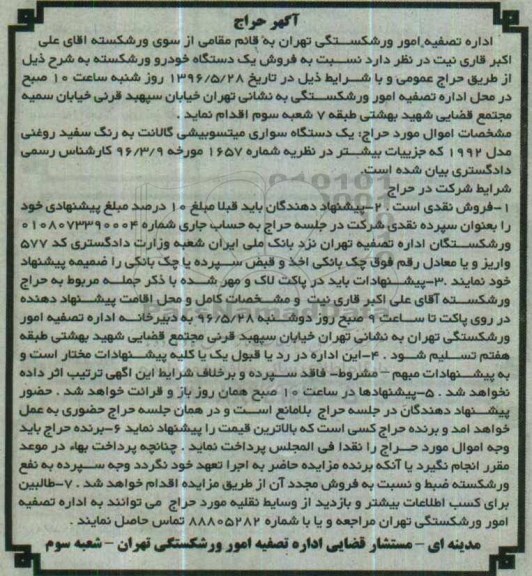 آگهی حراج
اداره تصفیه امور ورشکستگی تهران به قائم مقامی از سوی ورشکسته اقای علی
اکبر قاری نیت در نظر دارد نسبت به فروش یک دستگاه خودرو ورشکسته به شرح ذیل
از طریق حراج عمومی و با شرایط ذیل در تاریخ ۱۳۹۶/۵/۲۸ روز شنبه ساعت ۱۰ صبح
در محل اداره تصفیه امور ورشکستگی به نشانی تهران خیابان سپهبد قرنی خیابان سمیه
مجتمع قضایی شهید بهشتی طبقه ۷ شعبه سوم اقدام نماید .
مشخصات اموال مورد حراج: یک دستگاه سواری میتسوبیشی گالانت به رنگ سفید روغنی
مدل ۱۹۹۲ که جزییات بیشتر در نظریه شماره ۱۶۵۷ مورخه ۹۶/۳/۹ کارشناس رسمی
دادگستری بیان شده است.
شرایط شرکت در حراج
۱-فروش نقدی است . ۲-پیشنهاد دهندگان باید قبلا مبلغ ۱۰ درصد مبلغ پیشنهادی خود
را بعنوان سپرده نقدی شرکت در جلسه حراج به حساب جاری شماره ۰۱۰۸۰۷۳۳۹۰۰۰۴
ورشکستگان اداره تصفیه تهران نزد بانک ملی ایران شعبه وزارت دادگستری کد ۵۷۷
واریز و یا معادل رقم فوق چک بانکی اخذ و قبض سپرده یا چک بانکی را ضمیمه پیشنهاد
خود نمایند .۳-پیشنهادات باید در پاکت لاک و مهر شده با ذکر جمله مربوط به حراج
ورشکسته آقای علی اکبر قاری نیت و مشخصات کامل و محل اقامت پیشنهاد دهنده
در روی پاکت تا ساعت ۹ صبح روز دوشنبه ۹۶/۵/۲۸ به دبیرخانه اداره تصفیه امور
ورشکستگی تهران به نشانی تهران خیابان سپهبد قرنی مجتمع قضایی شهید بهشتی طبقه
هفتم تسلیم شود . ۴-این اداره در رد یا قبول یک یا کلیه پیشنهادات مختار است و
به پیشنهادات مبهم - مشروط- فاقد سپرده و برخلاف شرایط این اگهی ترتیب اثر داده
نخواهد شد . ۵-پیشنهادها در ساعت ۱۰ صبح همان روز باز و قرائت خواهد شد . حضور
پیشنهاد دهندگان در جلسه حراج بلامانع است و در همان جلسه حراج حضوری به عمل
خواهد امد و برنده حراج کسی است که بالاترین قیمت را پیشنهاد نماید ۶-برنده حراج باید
وجه اموال مورد حراج را نقدا فی المجلس پرداخت نماید . چنانچه پرداخت بهاء در موعد
مقرر انجام نگیرد یا آنکه برنده مزایده حاضر به اجرا تعهد خود نگردد وجه سپرده به نفع
ورشکسته ضبط و نسبت به فروش مجدد آن از طریق مزایده اقدام خواهد شد . ۷-طالبین
برای کسب اطلاعات بیشتر و بازدید از وسایط نقلیه مورد حراج می توانند به اداره تصفیه
امور ورشکستگی تهران مراجعه و یا با شماره ۸۸۸۰۵۲۸۲ تماس حاصل نمایند .
مدینه ای - مستشار قضایی اداره تصفیه امور ورشکستگی تهران - شعبه سوم